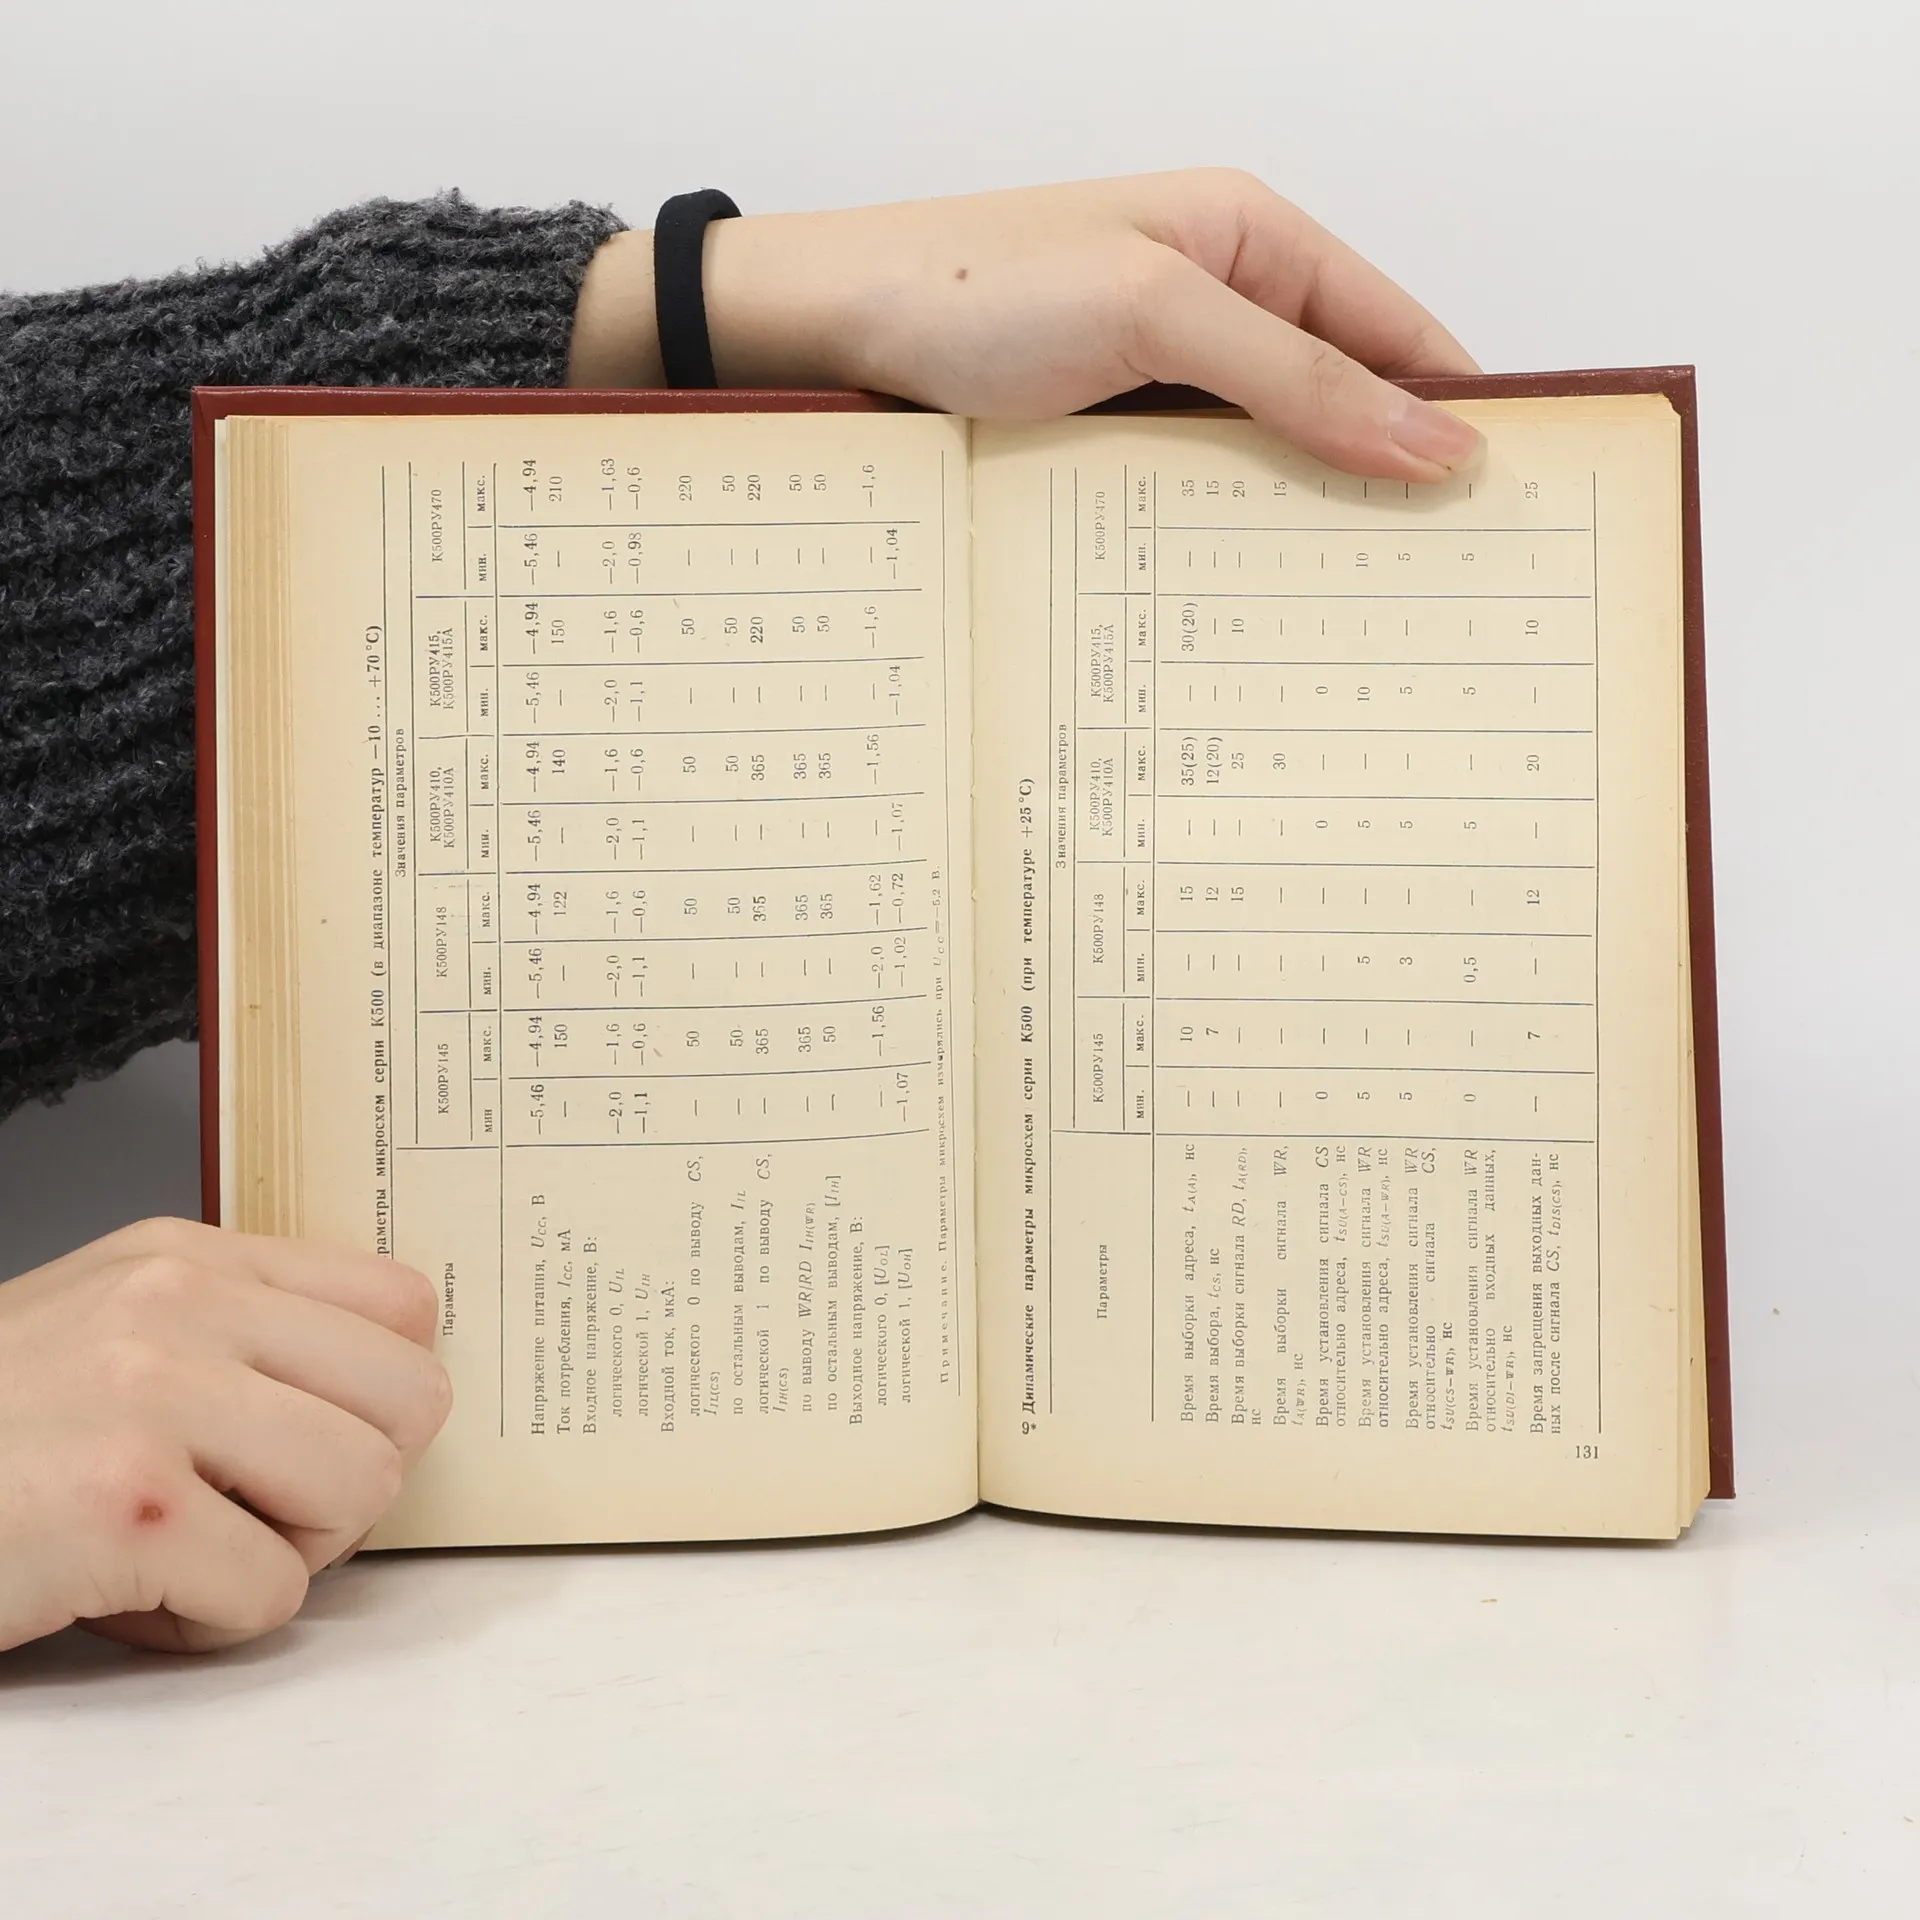 раметры микросхем серии К500 (в диапазоне температур —10 ... +70 °С)
Параметры
Значения параметров
К500РУ145 К500РУ148 К500РУ410, К500РУ415, К500РУ470
К500РУ410А К500РУ415А
мин макс. мин. макс. мин. макс. мин. макс. мин. макс.
Напряжение питания, UCC, В —5,46 —4,94 —5,46 —4,94 —5,46 —4,94 —5,46 —4,94 —5,46 —4,94
Ток потребления, ICC, мА — 150 — 122 — 140 — 150 — 210
Входное напряжение, В:
логического 0, UIL —2,0 —1,6 —2,0 —1,6 —2,0 —1,6 —2,0 —1,6 —2,0 —1,63
логической 1, UIH —1,1 —0,6 —1,1 —0,6 —1,1 —0,6 —1,1 —0,6 —0,98 —0,6
Входной ток, мкА:
логического 0 по выводу CS, — 50 — 50 — 50 — 50 — 220
IIL(CS)
по остальным выводам, IIL — 50 — 50 — 50 — 50 — 50
логической 1 по выводу CS, — 365 — 365 — 365 — 220 — 220
IIH(CS)
по выводу WR/RD IIH(WR) — 365 — 365 — 365 — 50 — 50
по остальным выводам, [IIH] — 50 — 365 — 365 — 50 — 50
Выходное напряжение, В:
логического 0, [UOL] — —1,56 —2,0 —1,62 — —1,56 — —1,6 — —1,6
логической 1, [UOH] —1,07 —1,02 —0,72 —1,07 —1,04 —1,04
Примечание. Параметры микросхем измерялись при UCC=—5,2 В.
Динамические параметры микросхем серии К500 (при температуре +25 °С)
Параметры
Значения параметров
К500РУ145 К500РУ148 К500РУ410, К500РУ415, К500РУ470
К500РУ410А К500РУ415А
мин. макс. мин. макс. мин. макс. мин. макс. мин. макс.
Время выборки адреса, tA(A), нс — 10 — 15 — 35(25) — 30(20) — 35
Время выбора, tCS, нс — 7 — 12 — 12(20) — — — 15
Время выборки сигнала RD, tA(RD), — — — 15 — 25 — 10 — 20
нс
Время выборки сигнала WR, — — — — — 30 — — — 15
tA(WR), нс
Время установления сигнала CS 0 — — — 0 — 0 — — —
относительно адреса, tSU(A—CS), нс
Время установления сигнала WR 5 — 5 — 5 — 10 — 10 —
относительно адреса, tSU(A—WR), нс
Время установления сигнала WR 5 — 3 — 5 — 5 — 5 —
относительно сигнала CS,
tSU(CS—WR), нс
Время установления сигнала WR 0 — 0,5 — 5 — 5 — 5 —
относительно входных данных,
tSU(DI—WR), нс
Время запрещения выходных дан- — 7 — 12 — 20 — 10 — 25
ных после сигнала CS, tDIS(CS), нс
131